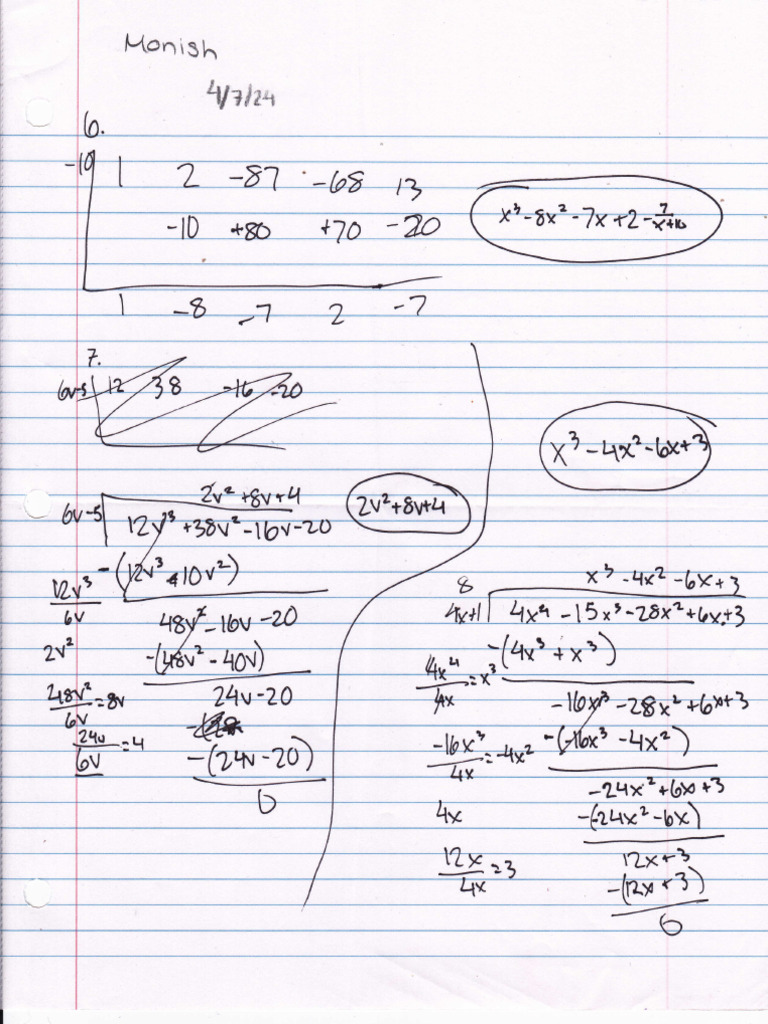 Monish
4/7/24
6.
-10| 1 2 -87 -68 13
-10 +80 +70 -20
1 -8 -7 2 -7
x³-8x²-7x+2-7/x+10
7.
6v-5| 12 38 -16 -20
2v²+8v+4
6v-5| 12v³+38v²-16v-20
2v²+8v+4
-(12v³-10v²)
12v³/6v
48v²-16v-20
2v²
-(48v²-40v)
48v²/6v=8v
24v-20
24v/6v=4
-(24v-20)
0
x³-4x²-6x+3
8
x³-4x²-6x+3
4x+1| 4x⁴-15x³-28x²+6x+3
-(4x³+x³)
4x⁴/4x=x³
-16x³-28x²+6x+3
-16x³/4x=-4x²
-(-16x³-4x²)
-24x²+6x+3
4x
-(-24x²-6x)
12x+3
12x/4x=3
-(12x+3)
0